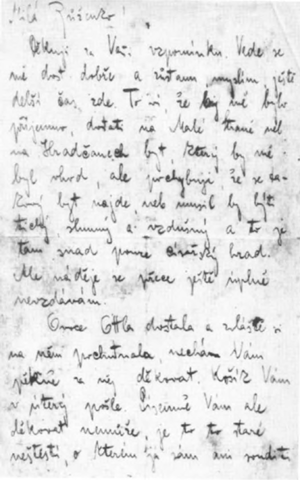 Milá Růženko!
Děkuji za Vaši vzpomínku. Vede se
mě dost dobře a zůstanu myslím ještě
delší čas zde. To ví, že by mě bylo
příjemno, dostati na Malé straně neb
na Hradčanech byt který by mě
byl vhod, ale pochybuji že se ta-
kový byt najde, neb musil by být
tichý slunný a vzdušný a to je
tam snad pouze císařský hrad.
Ale naděje se přece ještě úplně
nevzdávám.
Ovoce Ottla dostala a zvláště si
na něm pochutnala, nechám Vám
pěkně za něj děkovat. Košík Vám
v úterý pošle. Písemně Vám ale
děkovat nemůže, je to to staré
neštěstí, o kterém já sám ani souditi